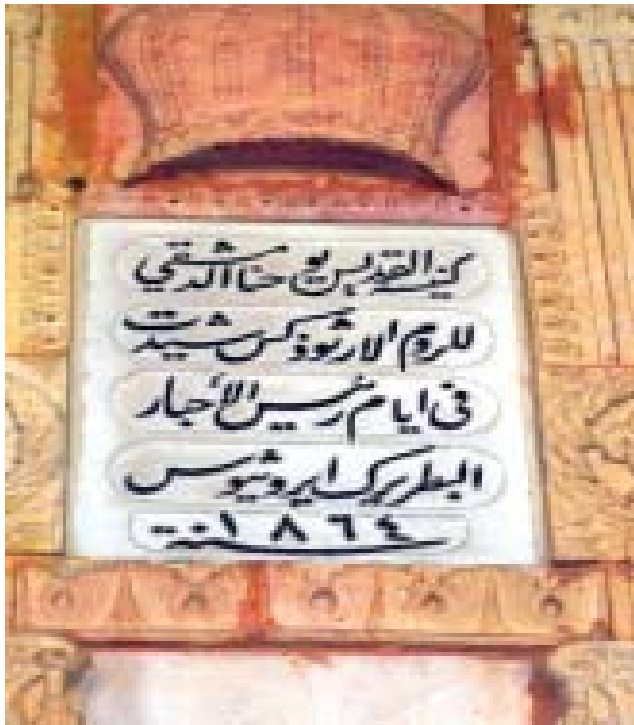 كنيسة القديس يوحنا الدمشقي
للروم الارثوذكس شيدت
في ايام رئيس الأحبار
البطريرك ايروثيوس
سنة ١٨٦٤